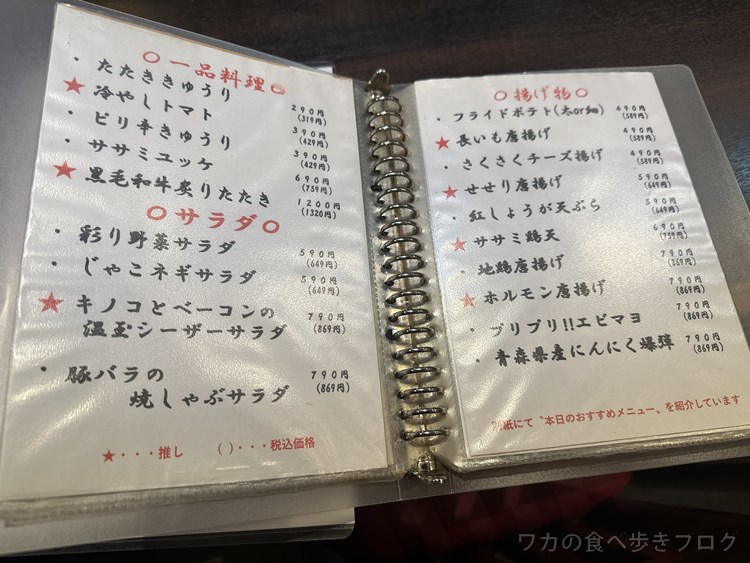 〇一品料理〇
・たたききゅうり 290円 (319円)
★冷やしトマト 390円 (429円)
・ピリ辛きゅうり 390円 (429円)
・ササミユッケ 690円 (759円)
★黒毛和牛炙りたたき 1200円 (1320円)
〇サラダ〇
・彩り野菜サラダ 590円 (649円)
・じゃこネギサラダ 590円 (649円)
★キノコとベーコンの
温玉シーザーサラダ 790円 (869円)
・豚バラの
焼しゃぶサラダ 790円 (869円)
★・・・推し ( )・・・税込価格
〇揚げ物〇
・フライドポテト(太or細) 490円 (589円)
★長いも唐揚げ 490円 (589円)
・さくさくチーズ揚げ 490円 (589円)
★せせり唐揚げ 590円 (649円)
・紅しょうが天ぷら 590円 (649円)
★ササミ鶏天 690円 (759円)
・地鶏唐揚げ 790円 (869円)
★ホルモン唐揚げ 790円 (869円)
・プリプリ!!エビマヨ 790円 (869円)
・青森県産にんにく爆弾 790円 (869円)
別紙にて〝本日のおすすめメニュー〟を紹介しています
ワカの食べ歩きブログ